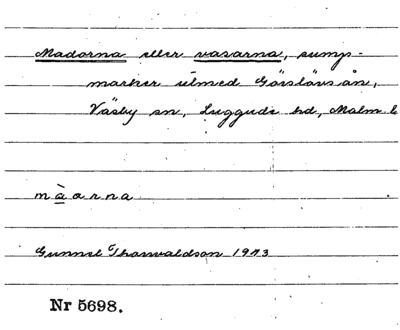 Madorna eller vasarna, sump-
marker utmed Görslövsån,
Väsby sn, Luggude hd, Malm. l
màarna
Gunnel Thorvaldson 1973
Nr 5698.